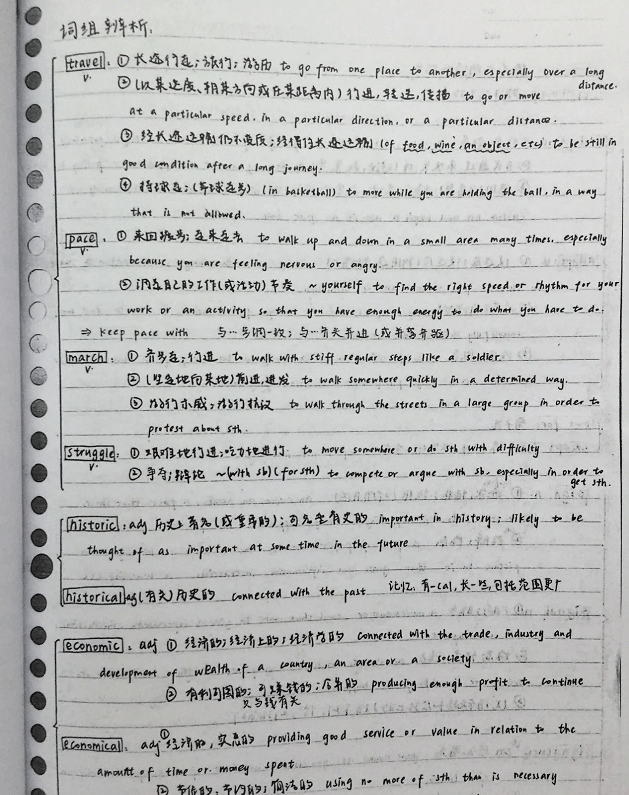 词组辨析.
travel: ① 长途行走;旅行;游历 to go from one place to another, especially over a long
v. distance.
② (以某速度、朝某方向或在某距离内)行进,转送,传播 to go or move
at a particular speed. in a particular direction, or a particular distance.
③ 经长途运输仍不变质;经得住长途运输 (of food, wine, an object, etc) to be still in
good condition after a long journey.
④ 持球走;(带球走步) (in basketball) to move while you are holding the ball, in a way
that is not allowed.
pace: ① 来回踱步;走来走去 to walk up and down in a small area many times, especially
v. because you are feeling nervous or angry.
② 调整自己的工作(或活动)节奏 ~yourself to find the right speed or rhythm for your
work or an activity so that you have enough energy to do what you have to do.
⇒ keep pace with 与…步调一致;与…齐头并进(或并驾齐驱)
march: ① 齐步走;行进 to walk with stiff regular steps like a soldier.
v. ② (坚定地向某地)前进,进发 to walk somewhere quickly in a determined way.
③ 游行示威;游行抗议 to walk through the streets in a large group in order to
protest about sth.
struggle: ① 艰难地行进;吃力地进行 to move somewhere or do sth with difficulty
v. ② 争夺;辩论 ~(with sb)(for sth) to compete or argue with sb. especially in order to
get sth.
historic: adj 历史上著名(或重要的);可名垂青史的 important in history; likely to be
thought of as important at some time in the future
historical adj (有关)历史的 connected with the past 记忆: 有-cal, 长一些,包括范围更广
economic: adj ① 经济的;经济上的;经济学的 connected with the trade, industry and
development of wealth of a country, an area or a society
② 有利可图的;可赚钱的;合算的 producing enough profit to continue
只与钱有关
economical: adj ① 经济的,实惠的 providing good service or value in relation to the
amount of time or money spent
② 节俭的;节约的;简洁的 using no more of sth than is necessary